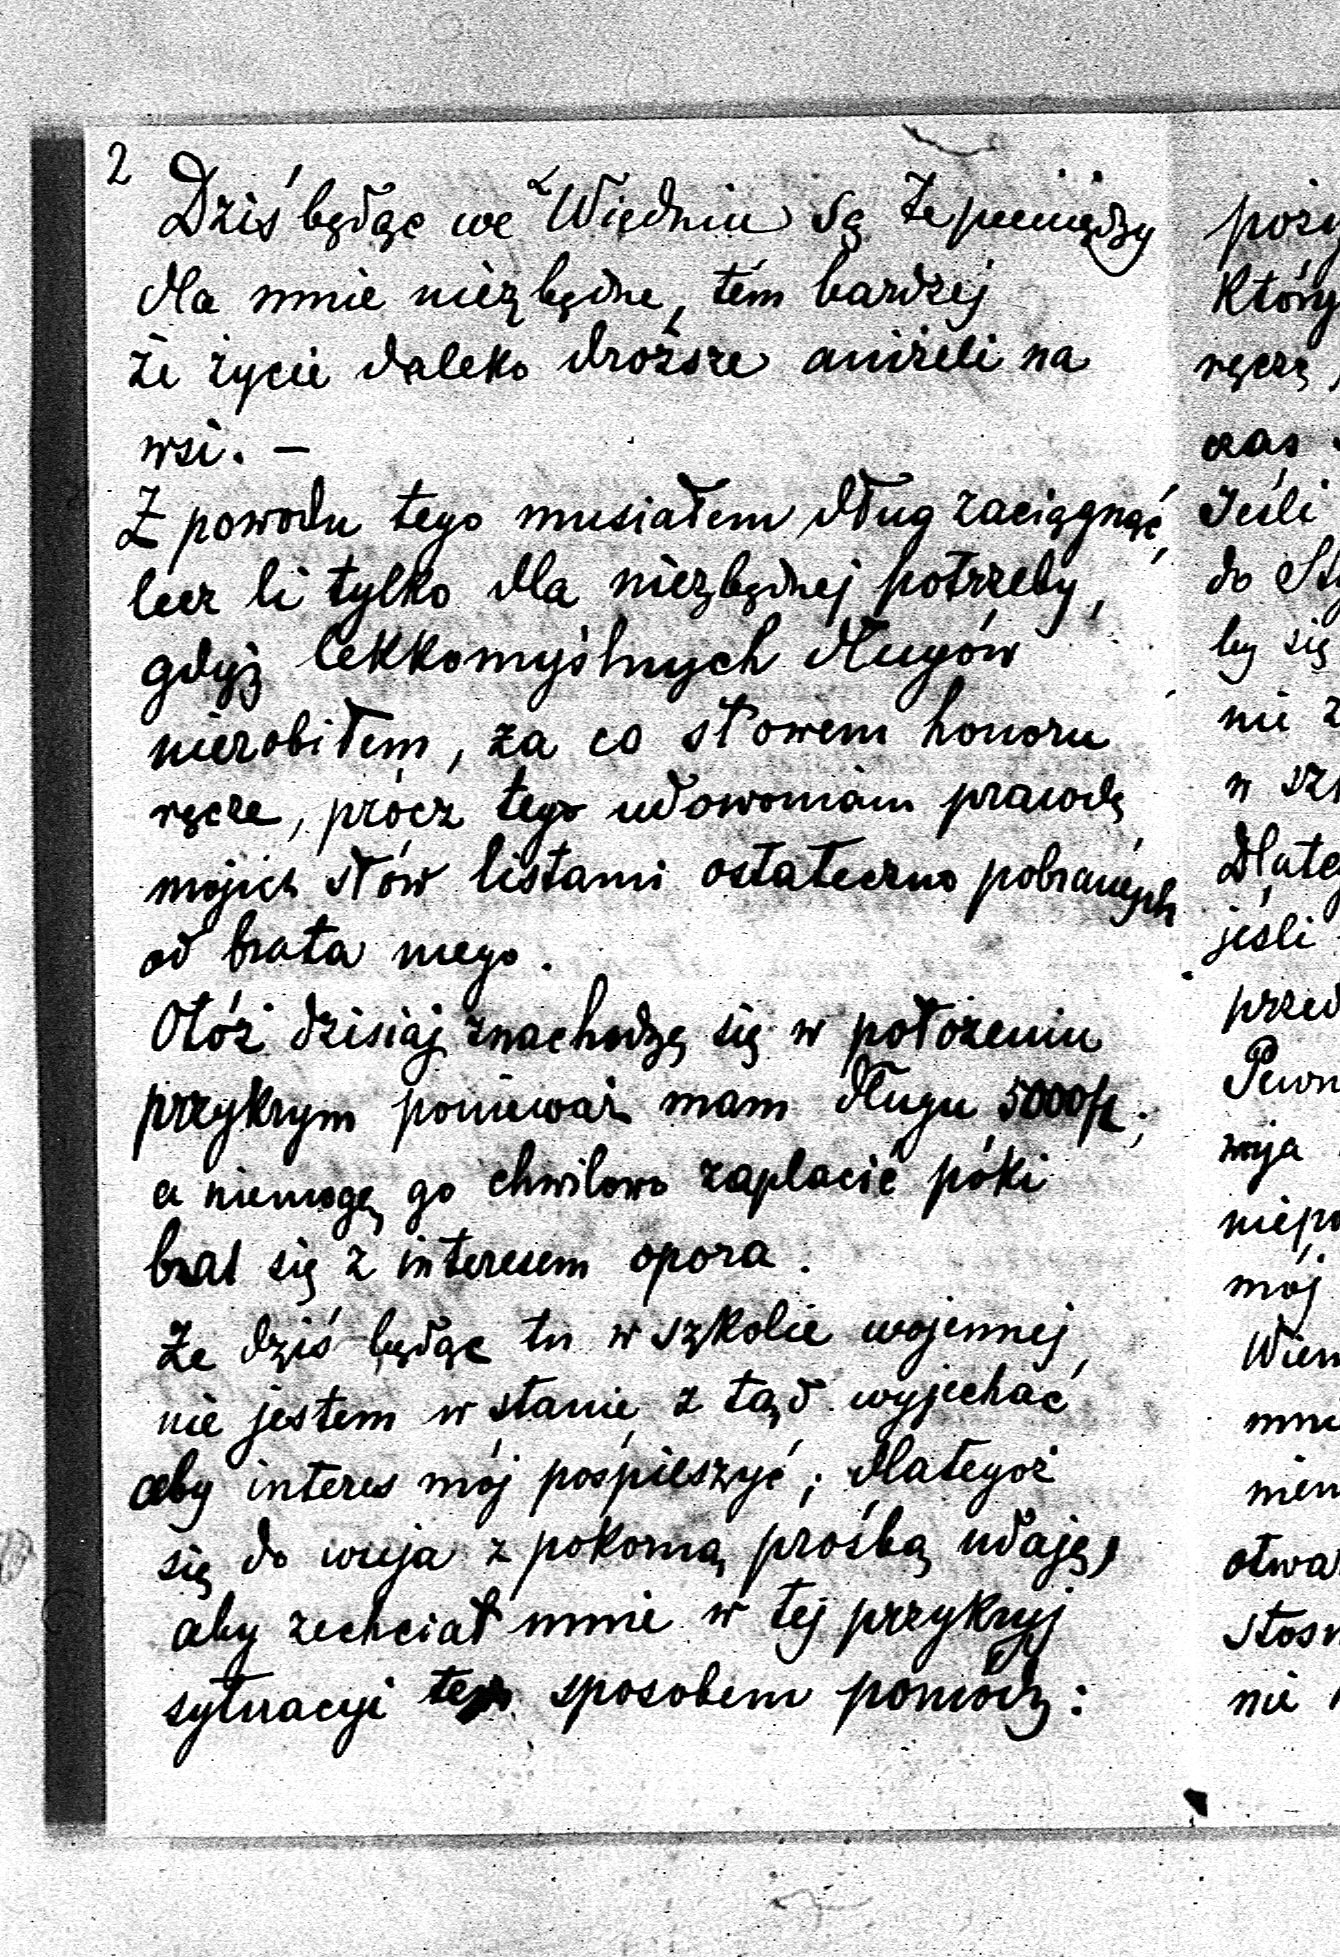 2
Dziś będąc we Wiedniu są te pieniędzy
dla mnie niezbędne, tém bardzej
że życie daleko droższe aniżeli na
wsi. —
Z powodu tego musiałem dług zaciągnąć,
lecz li tylko dla niezbędnej potrzeby,
gdyż lekkomyślnych długów
nierobiłem, za co słowem honoru
ręcze, prócz tego udowoniam prawdę
mojich słów listami ostateczno pobranych
od brata mego.
Otóż dzisiaj znachodzę się w położeniu
przykrym ponieważ mam długu 5000 fl.;
a niemogę go chwilowo zaplacić póki
brat się z interesem opora.
Że dziś będąc tu w szkole wojennej,
nie jestem w stanie z tąd wyjechać
aby interes mój pośpieszyć; dlategoż
się do wuja z pokorną prośbą udaję,
aby zechciał mnie w tej przykryj
sytuacyi sposobem pomódz:
Który
ręczę,
czas
Jeśli
do
by się
nie
jeśli
mój
nie